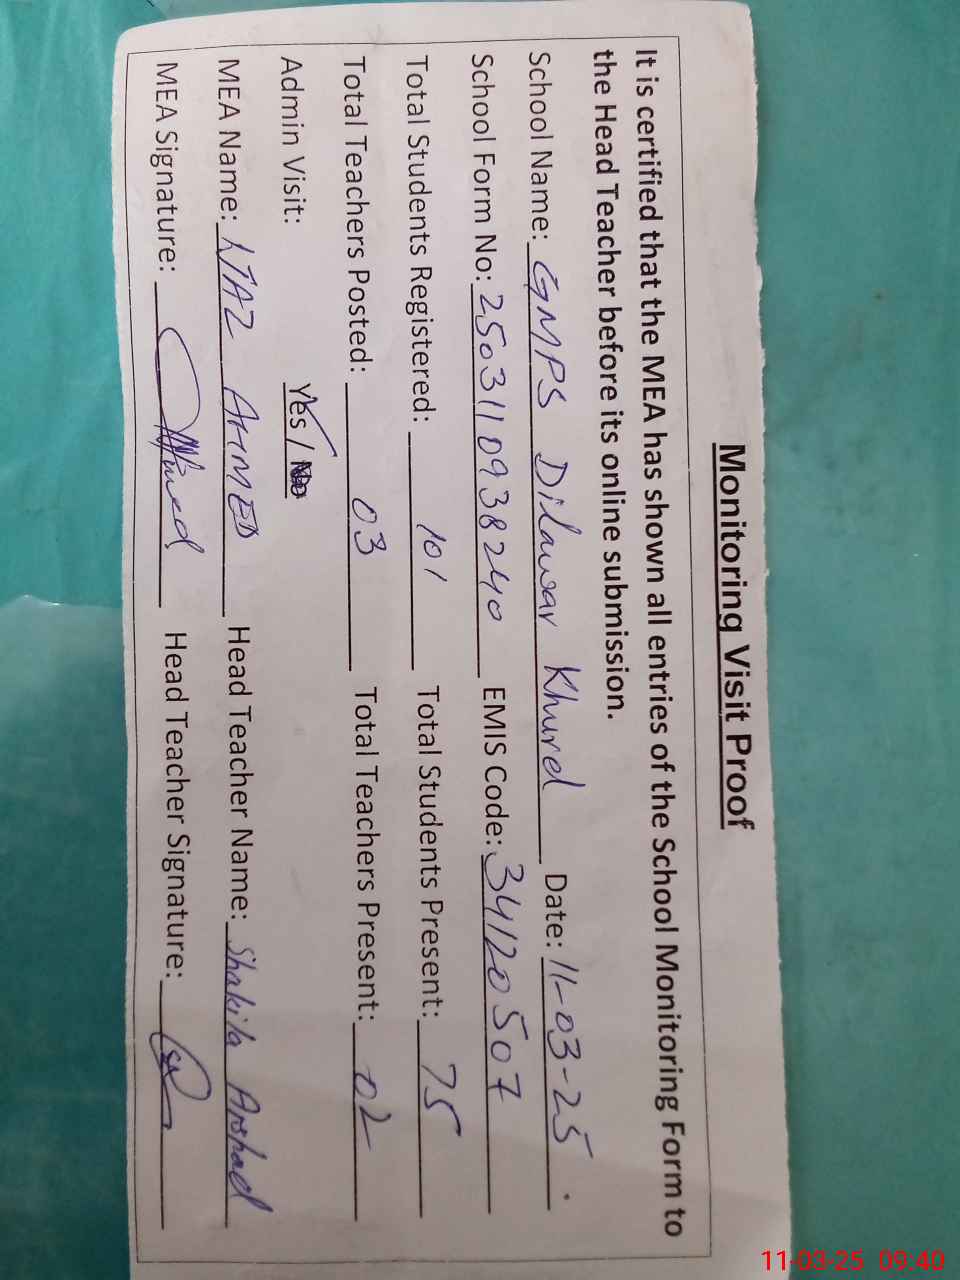 Monitoring Visit Proof
It is certified that the MEA has shown all entries of the School Monitoring Form to
the Head Teacher before its online submission.
School Name: GMPS Dilawar Khurd Date: 11-03-25.
School Form No: 2503110938240 EMIS Code: 34120507
Total Students Registered: 101 Total Students Present: 75
Total Teachers Posted: 03 Total Teachers Present: 02
Admin Visit: Yes / No
MEA Name: AHMED Head Teacher Name: Shakila Arshad
MEA Signature: Head Teacher Signature:
11-03-25 09:40